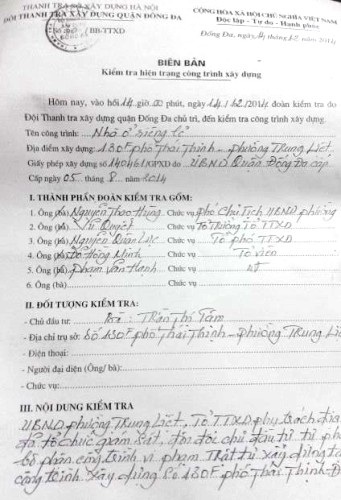 THANH TRA SỞ XÂY DỰNG HÀ NỘI
ĐỘI THANH TRA XÂY DỰNG QUẬN ĐỐNG ĐA
BB-TTXD
CỘNG HÒA XÃ HỘI CHỦ NGHĨA VIỆT NAM
Độc lập - Tự do - Hạnh phúc
Đống Đa, ngày 14 tháng 12 năm 2014
BIÊN BẢN
Kiểm tra hiện trạng công trình xây dựng
Hôm nay, vào hồi 14 giờ 00 phút, ngày 14/12/2014 đoàn kiểm tra do
Đội Thanh tra xây dựng quận Đống Đa chủ trì, đến kiểm tra công trình xây dựng.
Tên công trình: Nhà ở riêng lẻ
Địa điểm xây dựng: 130F phố Thái Thịnh - phường Trung Liệt
Giấy phép xây dựng số 140461/GPXD do UBND Quận Đống Đa cấp
Cấp ngày 05 - 8 - 2014
I. THÀNH PHẦN ĐOÀN KIỂM TRA GỒM:
1. Ông (bà) Nguyễn Hùng Chức vụ phó Chủ Tịch UBND phường
2. Ông (bà) Vũ Quyết Chức vụ Tổ trưởng Tổ TTXD
3. Ông (bà) Nguyễn Chức vụ Tổ phó TTXD
4. Ông (bà) Đỗ Hồng Minh Chức vụ Tổ viên
5. Ông (bà) Phạm Văn Hạnh Chức vụ
6. Ông (bà) Chức vụ
II. ĐỐI TƯỢNG KIỂM TRA:
- Chủ đầu tư: Bà: Trần Thị Tâm
- Địa chỉ trụ sở: Số 130F phố Thái Thịnh - phường Trung Liệt
- Điện thoại:
- Người đại diện (Ông/ bà):
- Chức vụ:
III. NỘI DUNG KIỂM TRA
UBND phường Trung Liệt, Tổ TTXD phụ trách địa
đã tổ chức giám sát, đôn đốc chủ đầu tư tự phá
bộ phận công trình vi phạm Trật tự xây dựng tại
công trình xây dựng số 130F phố Thái Thịnh